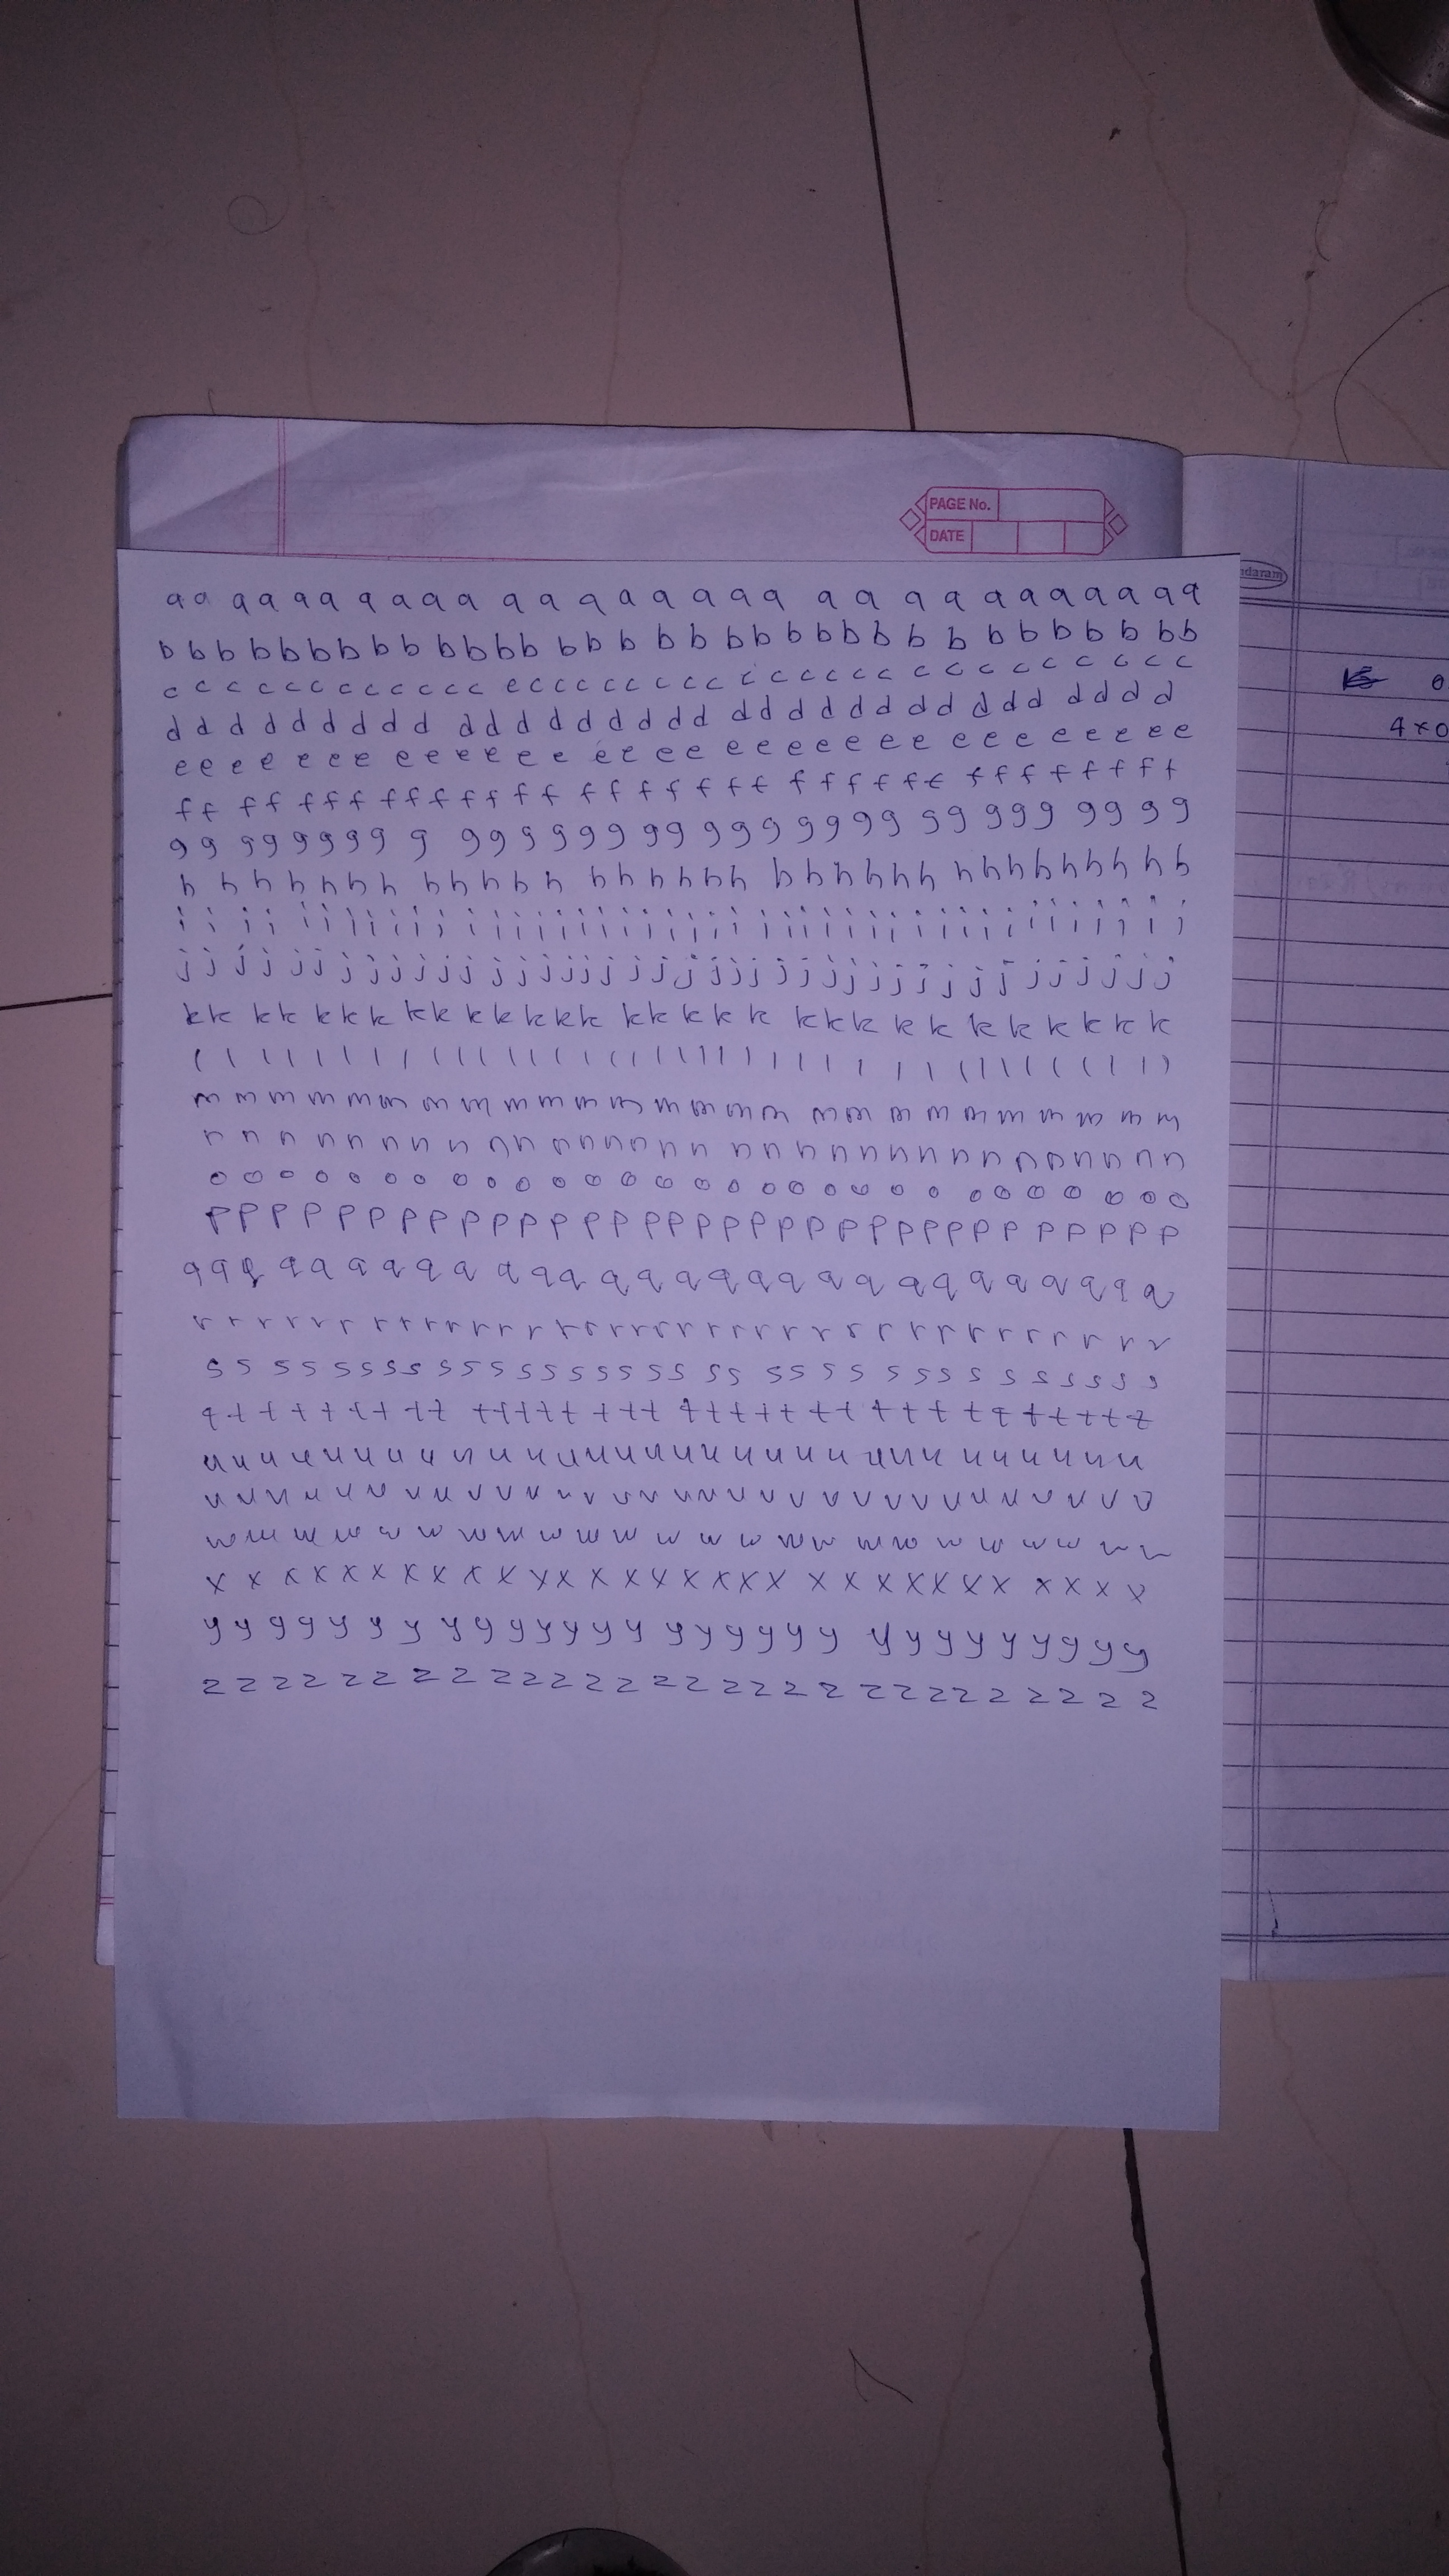 PAGE No.
DATE
daram
a a a a a a a a a a a a a a a a a a a a a a a a a a a a a a a
b b b b b b b b b b b b b b b b b b b b b b b b b b b b b b b b b
c c c c c c c c c c c c c c c c c c c c c c c c c c c c c c c c c c
d d d d d d d d d d d d d d d d d d d d d d d d d d d d d d d d
e e e e e e e e e e e e e e e e e e e e e e e e e e e e e e e
f f f f f f f f f f f f f f f f f f f f f f f f f f f f f f f f f f
g g g g g g g g g g g g g g g g g g g g g g g g g g g g g g g
h h h h h h h h h h h h h h h h h h h h h h h h h h h h h h h h
i i i i i i i i i i i i i i i i i i i i i i i i i i i i i i i i i i i i i i i
j j j j j j j j j j j j j j j j j j j j j j j j j j j j j j j j j j j j j
k k k k k k k k k k k k k k k k k k k k k k k k k k k k k
l l l l l l l l l l l l l l l l l l l l l l l l l l l l l l l l l l l l
m m m m m m m m m m m m m m m m m m m m m m m m m m
n n n n n n n n n n n n n n n n n n n n n n n n n n n n n n n
o o o o o o o o o o o o o o o o o o o o o o o o o o o o
p p p p p p p p p p p p p p p p p p p p p p p p p p p p p p p p
q q q q q q q q q q q q q q q q q q q q q q q q q q q q
r r r r r r r r r r r r r r r r r r r r r r r r r r r r r r r r
s s s s s s s s s s s s s s s s s s s s s s s s s s s s s s s s
t t t t t t t t t t t t t t t t t t t t t t t t t t t t t t t t t
u u u u u u u u u u u u u u u u u u u u u u u u u u u u u
v v v v v v v v v v v v v v v v v v v v v v v v v v v v v v
w w w w w w w w w w w w w w w w w w w w w w w w w
x x x x x x x x x x x x x x x x x x x x x x x x x x x x x
y y y y y y y y y y y y y y y y y y y y y y y y y y y y
z z z z z z z z z z z z z z z z z z z z z z z z z z z z
4×0